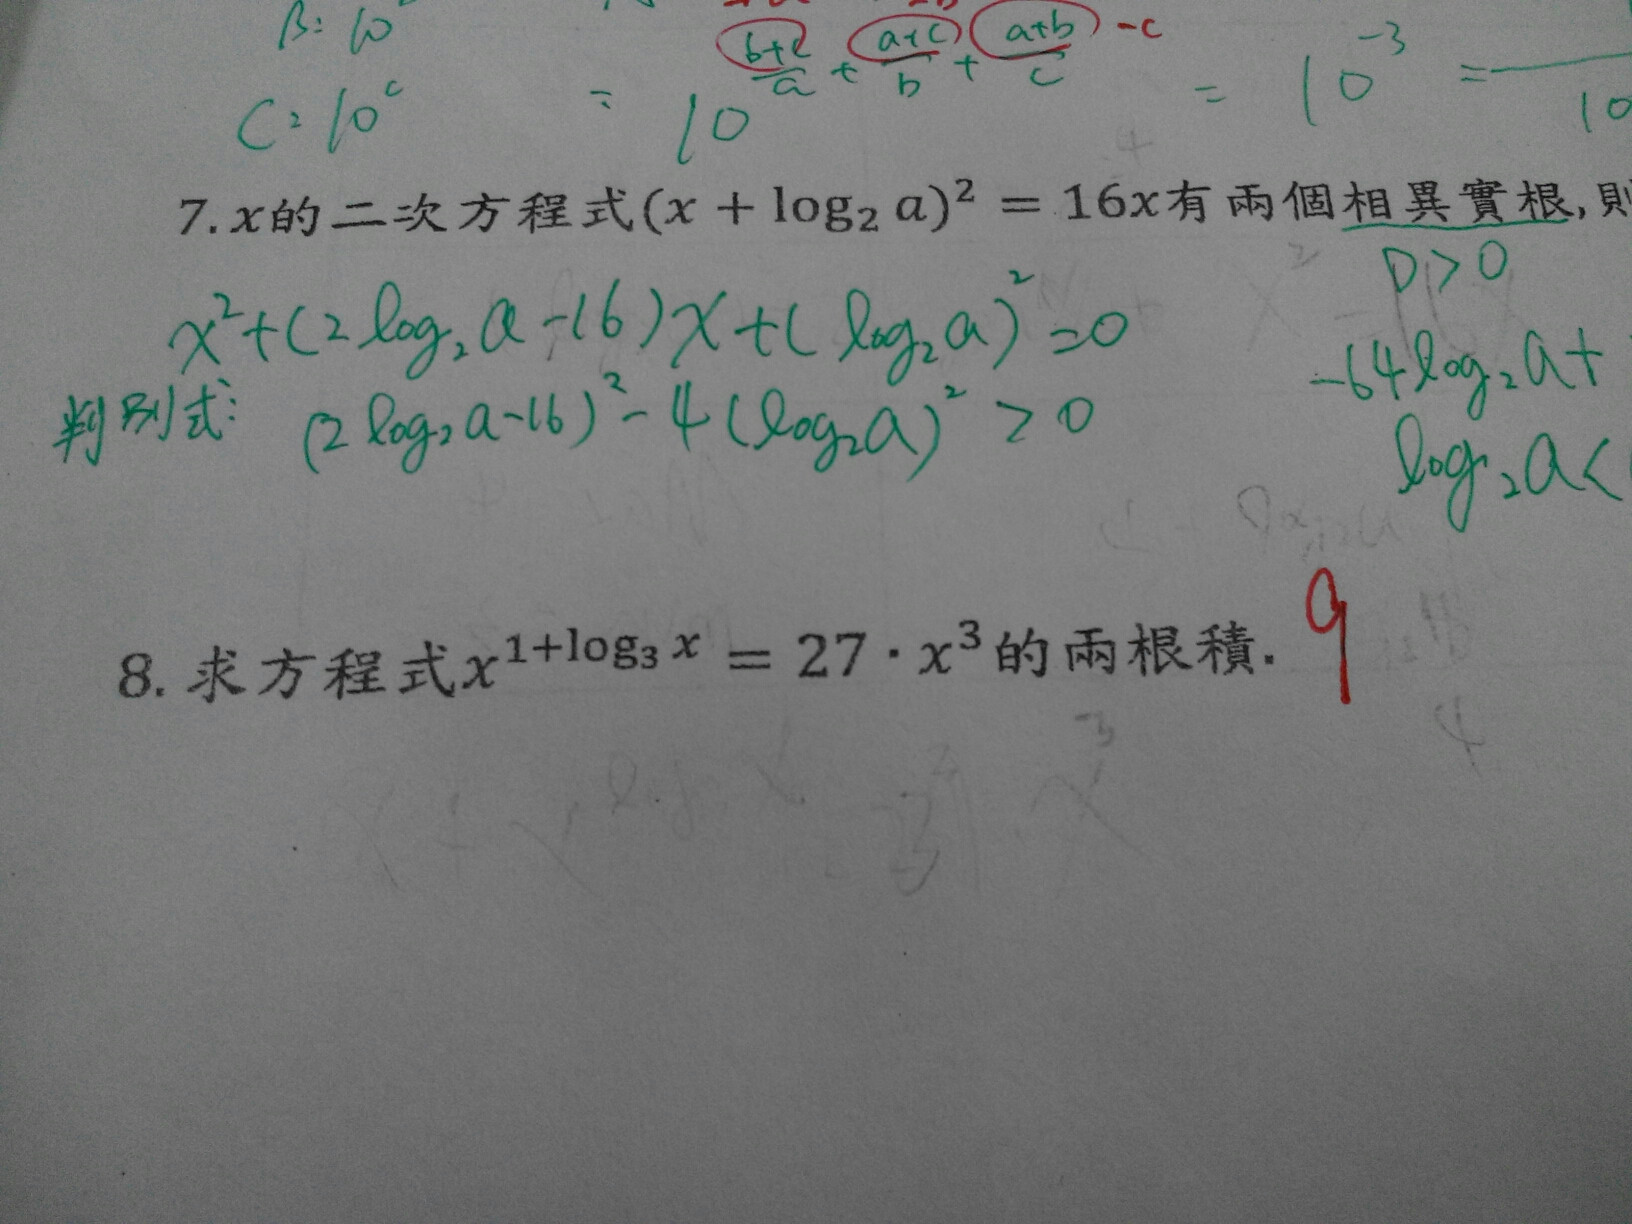 B = 10
C = 10^c = 10^{\frac{b+c}{a} + \frac{a+c}{b} + \frac{a+b}{c}} = 10^{-3} = \frac{}{10}
-c
7. x的二次方程式(x + log₂ a)² = 16x有兩個相異實根, 則
D > 0
x² + (2 log₂ a - 16)x + (log₂ a)² = 0
-64 log₂ a +
判別式: (2 log₂ a - 16)² - 4(log₂ a)² > 0
log₂ a <
8. 求方程式x^{1+log₃ x} = 27 · x³的兩根積. 9